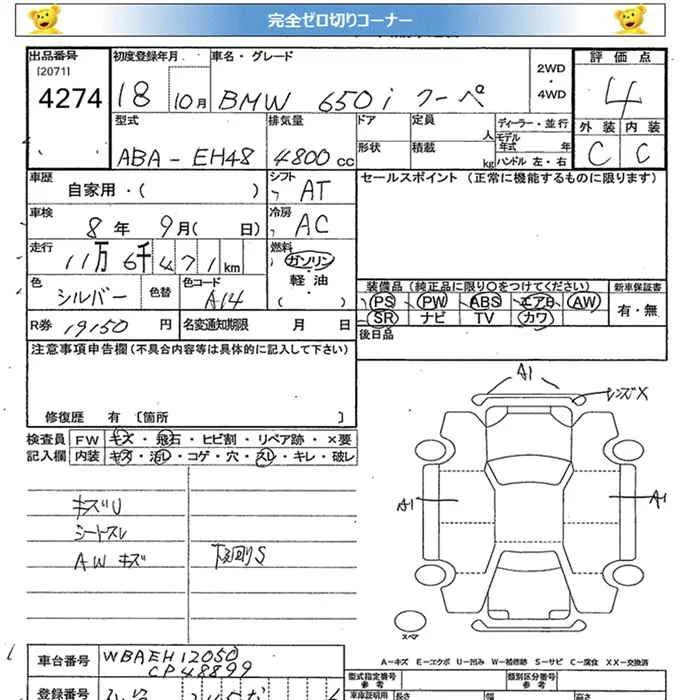 完全ゼロ切りコーナー
出品番号
[2071]
4274
初度登録年月
18 10月
車名・グレード
BMW 650i クーペ
2WD
・
4WD
評価点
4
外装 内装
C C
型式
ABA-EH48
排気量
4800cc
ドア
形状
定員
人
積載
kg
ディーラー・並行
モデル年式 年
ハンドル 左・右
車歴
自家用・( )
シフト
AT
セールスポイント (正常に機能するものに限ります)
車検
8年 9月( 日)
冷房
AC
走行
11万6千471km
燃料
ガソリン・
軽油
( )
色
シルバー
色替
色コード
A14
装備品 (純正品に限り○をつけてください)
PS PW ABS エアB AW
SR ナビ TV カワ
新車保証書
有・無
R券 19150円
名変通知期限 月 日
後日品
注意事項申告欄(不具合内容等は具体的に記入して下さい)
修復歴 有 〔箇所 〕
検査員
記入欄
FW キズ・飛石・ヒビ割・リペア跡・×要
内装 キズ・汚レ・コゲ・穴・スレ・キレ・破レ
キズU
シートスレ
AW キズ
下回りS
A1
レンズX
A1
A1
スペア
A-キズ E-エクボ U-凹み W-補修跡 S-サビ C-腐食 XX-交換済
車台番号
WBAEH12050
CP48899
登録番号
型式指定番号
参考
類別区分番号
参考
車庫証明用
長さ
幅
高さ